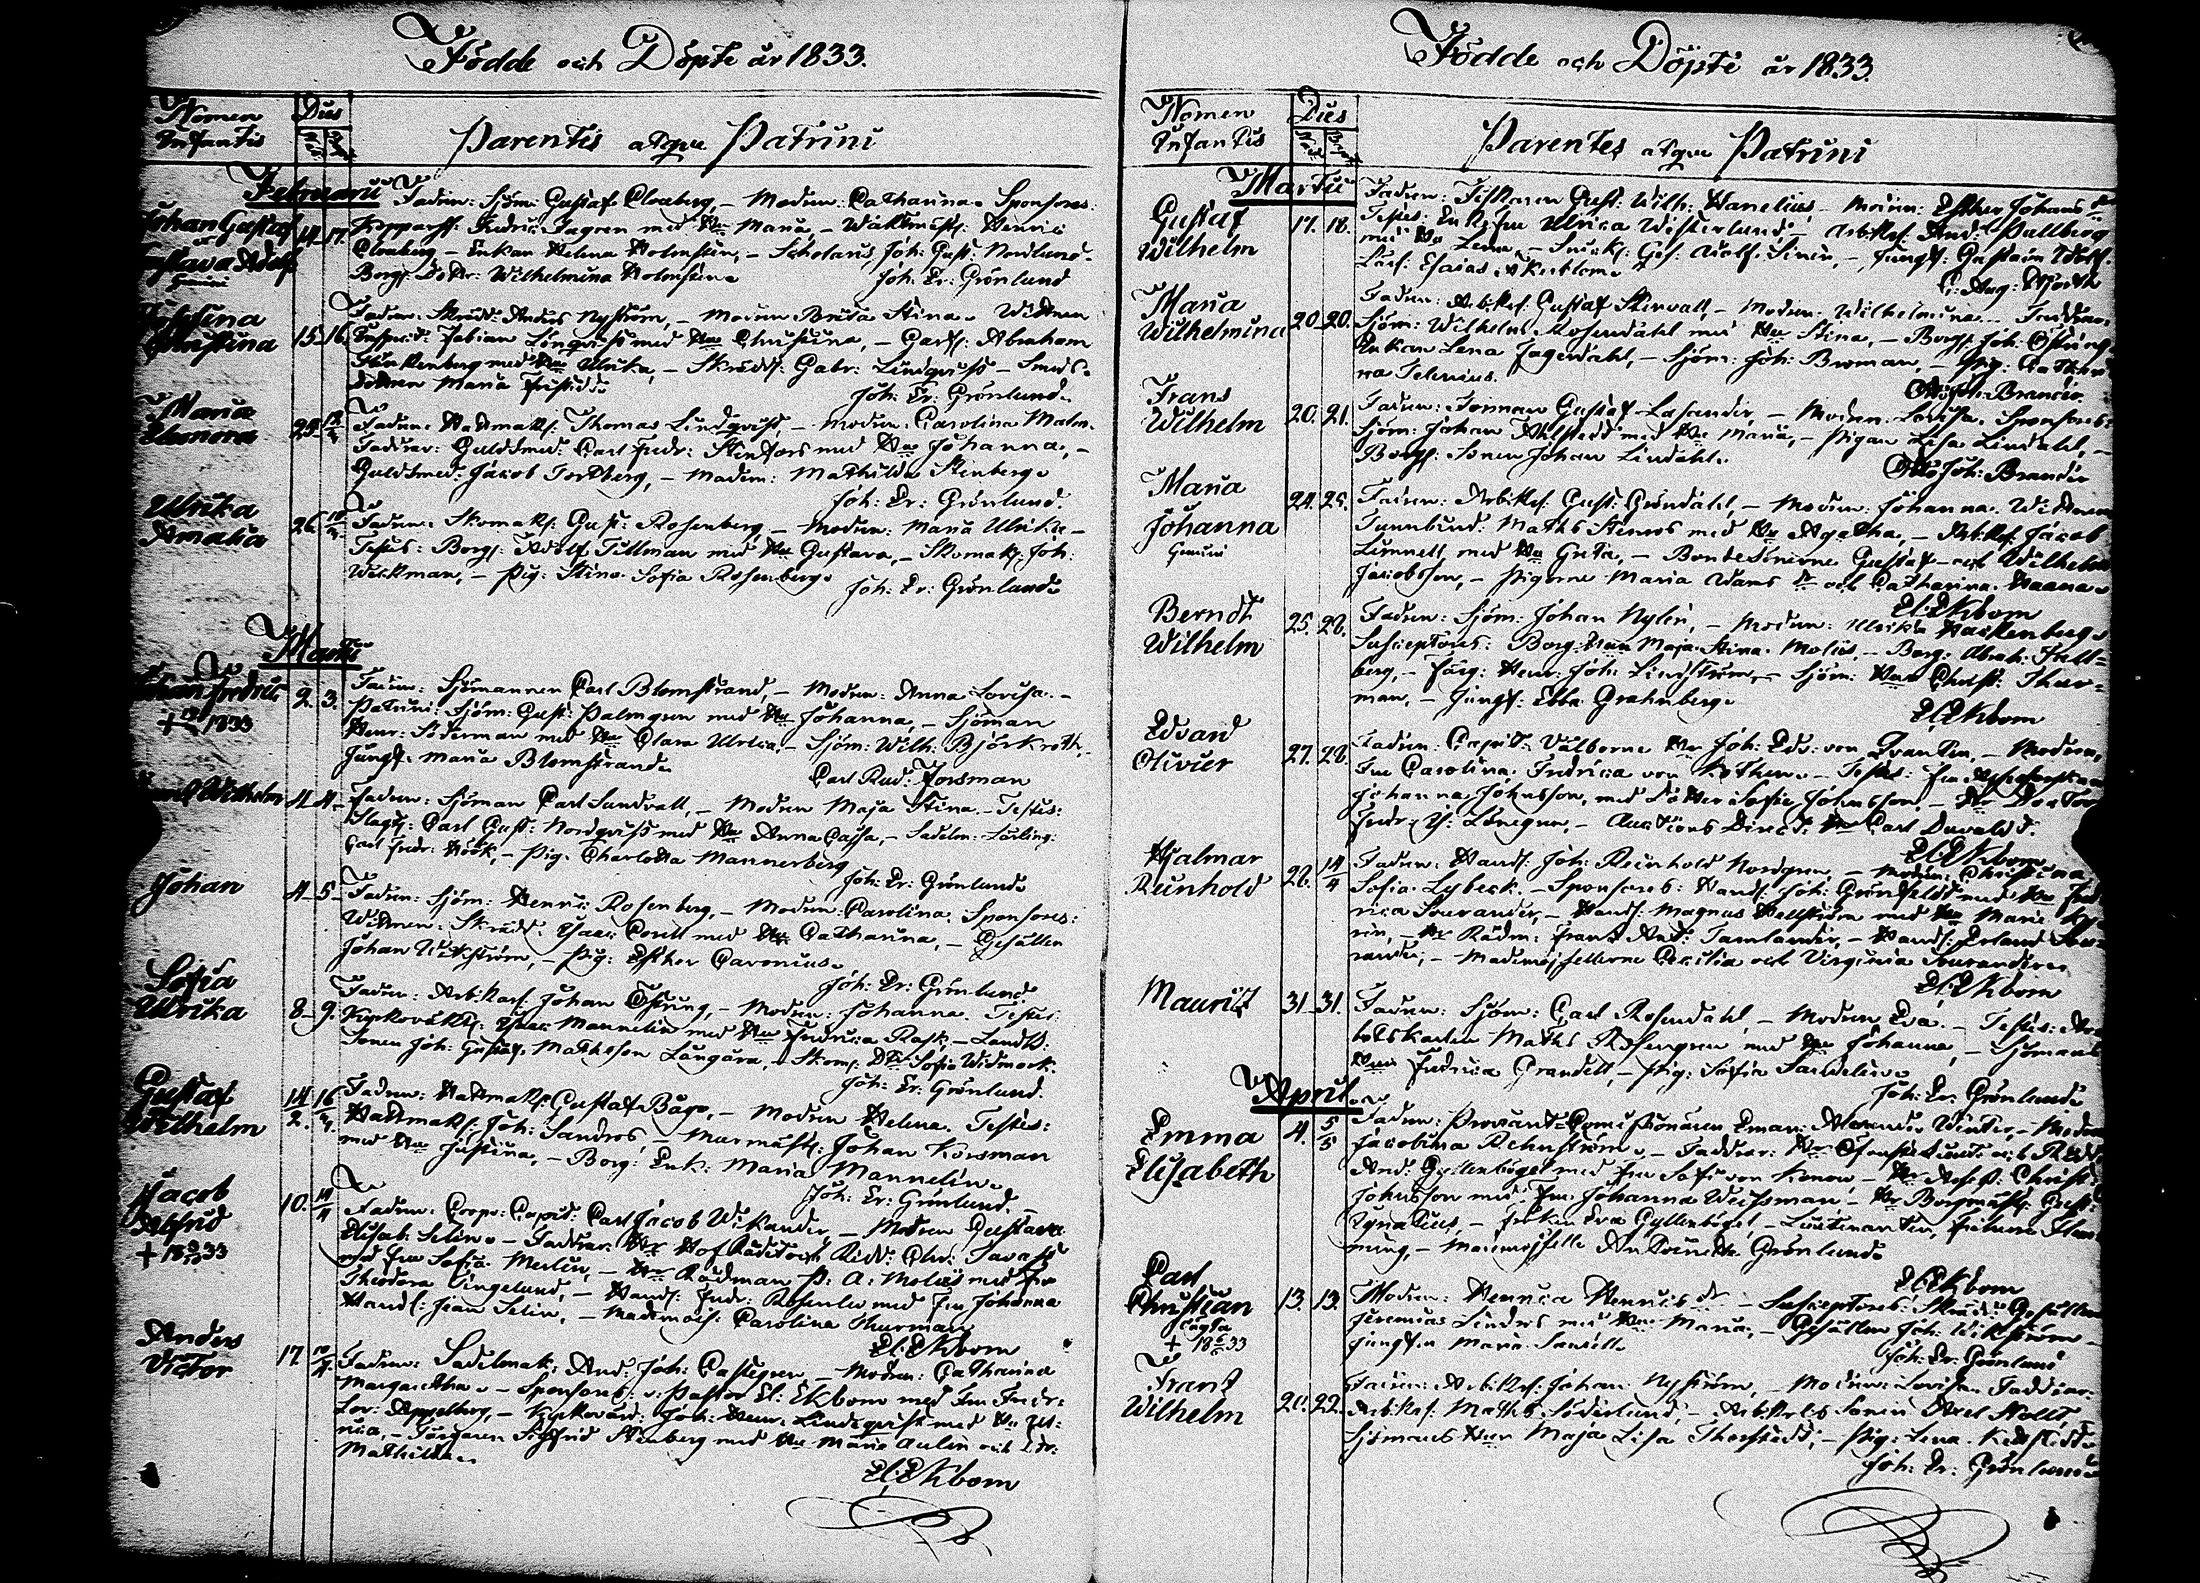 Födde och Döpte år 1833.
Nomen Infantis
Dies
Parentes atque Patrini
Februarii
Johan Gustaf
et
Gustava Adolf
Gemini
14. 17.
Fadren: Sjöm: Gustaf Cloberg, – Modren: Catharina. Sponsores:
Kopparsl: Fredric Fagren med Hu Maria, – Waktmäst: Henric
Cloberg – Enkan Helena Holmstén, – Scholaris, Joh: Gust: Nordlund –
Borg: Dottr: Wilhelmina Holmstén.
Joh: Er: Grönlund
Josefina
Christina
15. 16.
Fadren: Skrädd: Anders Nyström, – Modren Brita Stina. Wittnen
Inspect: Fabian Lönqvist med Hu Christina, – Garf: Abraham
med Hu Ulrika, – Skrädd: Gabr: Lindqvist – Smeds-
dottren Maria
Joh: Er: Grönlund.
Maria
Eleonora
Fadren: Hattmak: Thomas Lindqvist – Modren: Carolina Malm.
Faddrar: Guldsmed: Carl Fredr: Stenfors med Hu Johanna, –
Guldsmed: Jacob Tortberg, – Madem: Mathilda Stenberg.
Joh: Er: Grönlund.
Ulrika
Amalia
26.
Fadren: Skomak: Gust: Rosenberg, – Modren: Maria Ulrika –
Testes: Borg: Adolf Tillman med Hu Gustava, – Skomak: Joh:
Wickman, – Pig: Stina Sofia Rosenberg.
Joh: Er: Grönlund.
Martii
Johan Fredric
1833
2. 3.
Fadren: Sjömannen Carl Blomstrand, – Modren: Anna Lovisa. –
Patrini: Sjöm: Gust: Palmgren med Hu Johanna, – Sjöman
Henr: Söderman med Hu Clara Ulrica, – Sjöm: Wilh: Björkroth,
Jungf: Maria Blomstrand.
Carl Rud: Forsman
Wilhelm
4. 4.
Fadren: Sjöman Carl Sundvall, – Modren Maja Stina. – Testes:
Slagt: Carl Gust: Nordqvist med Hu Anna Cajsa, – Sadelm: Lärling:
Carl Fredr: Höök, – Pig: Charlotta Mannerberg
Joh: Er: Grönlund.
Johan
4. 5.
Fadren: Sjöm: Henric Rosenberg, – Modren: Carolina. Sponsores:
Wittnen: Skrädd: Isaac Corell med Hu Catharina, – Gesällen
Johan Wikström, – Pig: Esther Caronius.
Joh: Er: Grönlund.
Sofia
Ulrika
8. 9.
Fadren: Arb:Karl: Johan Östring, – Modren: Johanna. Testes:
Kyrkovakt: Isaac Mannelin med Hu Fredrica Rask, – Landtb:
Sonen Joh: Gustaf Mathsson Långåra, – Skom: Dtr Sofia Widmark.
Joh: Er: Grönlund.
Gustaf
Wilhelm
Fadren: Hattmak: Gustaf Båge, – Modren Helena. Testes:
Hattmak: Joh: Sandros – Murmäst: Johan Korsman
med Hu Justina, – Borg: Enk: Maria Mannelin.
Joh: Er: Grönlund.
Jacob
Betfrid
10.
Fadren: Corps: Capit: Carl Jacob Wikander, – Modren Gustava
Elisab: Selin. – Faddrar: Hr HofRådet och Ridd: Chr: Tavast
med Fru Sofia Merlin, – Hr Rådman P: A: Moliis med Fru
Theodora Lingelund, – Handl: Fredr: Rosenlew med Fru Johanna
Handl: Jean Selin, – Mademois: Carolina Thurman
El: Ekbom
Anders
Victor
17
Fadren: Sadelmak: And: Joh: Castegren, – Modren: Catharina
Margaretha. – Sponsores: v: Pastor El: Ekbom med Fru Fredr:
Lov: Appelberg, – Kyrkovärd: Joh: Henr: Lindeqvist med Hu Ul-
rica, – Färgaren Sigfrid Stenberg med Hu Maria Aulin och Dtr
Mathilda.
El: Ekbom
Födde och Döpte år 1833.
Nomen Infantis
Dies
Parentes atque Patrini
Martii
Gustaf
Wilhelm
17. 18.
Fadren: Fiskaren Gust: Wilh: Hanelius, – Modren: Esther Johans dr
Testes: Enk:fru Ulrica Wisterlund – Arb:Karl: And: Pallberg
med Hu Lena, – Snick: Ges: Adolf Sirén, –
Lärl: Esaias Wikblom.
C: Aug: Hjorth
Maria
Wilhelmina
20. 20.
Fadren: Arb:Karl: Gustaf Stenvall, – Modren: Wilhelmina. – Faddrar:
Sjöm: Wilhelm Rosendahl med Hu Stina, – Borg: Joh: Östring
Enkan Lena Jagerdahl, – Sjöm: Joh: Broman, – Pig: Catha-
rina Selenius.
Otto Joh: Brander
Frans
Wilhelm
20. 21.
Fadren: Timman Gustaf Lasander, – Modren: Lovisa. Sponsores:
Sjöm: Johan Ahlstedt med Hu Maria, – Pigan Lisa Lindahl, –
Borg: Sonen Johan Lindahl.
Otto Joh: Brander
Maria
Johanna
Gemini
24. 25.
Fadren: Arb:Karl: Gust: Gröndahl, – Modren: Johanna. Wittnen
Tunnbind: Maths Stenros med Hu Agatha, – Arb:Karl: Jacob
Limnell med Hu Greta, – BondeSönerne Gustaf och Wilhelm
Jacobsson, – Pigorne Maria Mats dr och Catharina Haana.
El: Ekbom
Berndt
Wilhelm
25. 28.
Fadren: Sjöm: Johan Nylin, – Modren: Ulrika Hackenberg.
Susceptores: Borg:Hun Maja Stina Moliis, – Borg: Abrah: Hall-
berg, – Färg: Henr: Joh: Lindström, – Sjöm: Hun Christ: Thur-
man, – Jungf: Ebba Grahnberg.
El: Ekbom
Edvard
Olivier
27. 28.
Fadren: Capit: Välborne Hr Joh: Edv: von Qvanten, – Modren,
Fru Carolina Fredrica von Kothen. – Testes:
Johanna Johnsson, med Dotter Sofie Johnsson, – Hr Doctor
Fredr: J: Lönegren, – Auctions Direct: Hr Carl Duvaldt.
El: Ekbom
Hjalmar
Reinhold
28. 14/4
Fadren: Handl: Joh: Reinhold Nordgren, – Modren: Christina
Sofia Lybeck. – Sponsores: Handl: Joh: Grönfeldt med Hu Fred-
rica Sourander, – Handl: Magnus Hellström med Hu Maria
– Hr Rådm: Frans And: Tamlander, – Handl: Erland Sou-
rander, – Mademoisellerne Cecilia och Virginia Sourander.
El: Ekbom
Mauritz
31. 31.
Fadren: Sjöm: Carl Rosendahl, – Modren Eva. – Testes: Ar-
betskarlen Maths Rosengren med Hu Johanna, – Sjömans
Hun Fredrica Grandell, – Pig: Sofia Sandelin.
Joh: Er: Grönlund.
April.
Emma
Elisabeth
4. 5/5
Fadren: Proviant-Comissionären Eman: Alexander Winter, – Modren
Jacobina Rehnström. – Faddrar: Hr Öfverstlieutn: och Ridd:
And: Gyllenbögel med Fru Sofi von Konow – Hr Assess: Christ:
Johnsson med Fru Johanna Weisman, – Hr Borgmäst: Gust:
Ignatius, – Fröken Eva Gyllenbögel, – Lieutenanten, Friherre Flem-
ming, – Mademoiselle Antoinette Grönlund.
El: Ekbom
Carl
Christian
oägta
13. 13.
Modren: Henrica Henrics dr – Susceptores: Skrädd: Gesällen
Jeremias Lindros med Hu Maria, – Gesällen Joh: Wikström –
Jungfru Maria Savéll.
Joh: Er: Grönlund
Frans
Wilhelm
20. 22.
Fadren: Arb:Karl: Johan Nyström, – Modren: Lovisa. Faddrar:
Arb:Karl: Maths Söderlund, – Arb:Karls Sonen Axel Nolls,
Sjömans Hun Maja Lisa Thorstedt, – Pig: Lena
Joh: Er: Grönlund